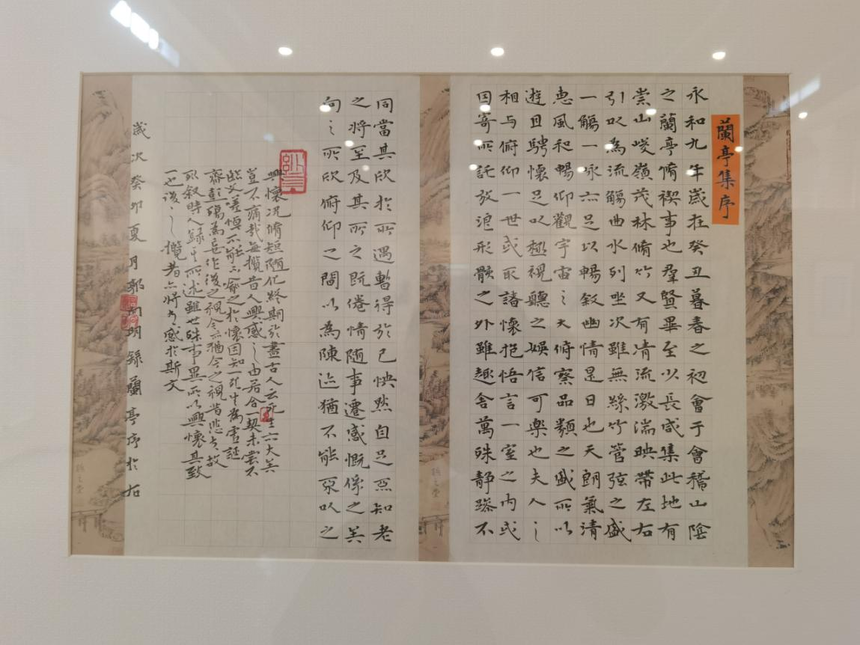 蘭亭集序
永和九年歲在癸丑暮春之初會于會稽山陰
之蘭亭脩禊事也羣賢畢至少長咸集此地有
崇山峻嶺茂林脩竹又有清流激湍映帶左右
引以為流觴曲水列坐次雖無絲竹管弦之盛
一觴一咏亦足以暢敘幽情是日也天朗氣清
惠風和暢仰觀宇宙之大俯察品類之盛所以
遊目騁懷足以極視聽之娛信可樂也夫人之
相与俯仰一世或取諸懷抱悟言一室之內或
因寄所託放浪形骸之外雖趣舍萬殊靜躁不
同當其欣於所遇暫得於己怏然自足不知老
之將至及其所之既倦情隨事遷感慨係之矣
向之所欣俯仰之間以為陳迹猶不能不以之
興懷況脩短隨化終期於盡古人云死生亦大矣
豈不痛哉每攬昔人興感之由若合一契未嘗不
臨文嗟悼不能喻之於懷固知一死生為虛誕
齊彭殤為妄作後之視今亦猶今之視昔悲夫故
列敘時人錄其所述雖世殊事異所以興懷其致
一也後之攬者亦將有感於斯文
歲次癸卯夏月 明錄蘭亭序於右